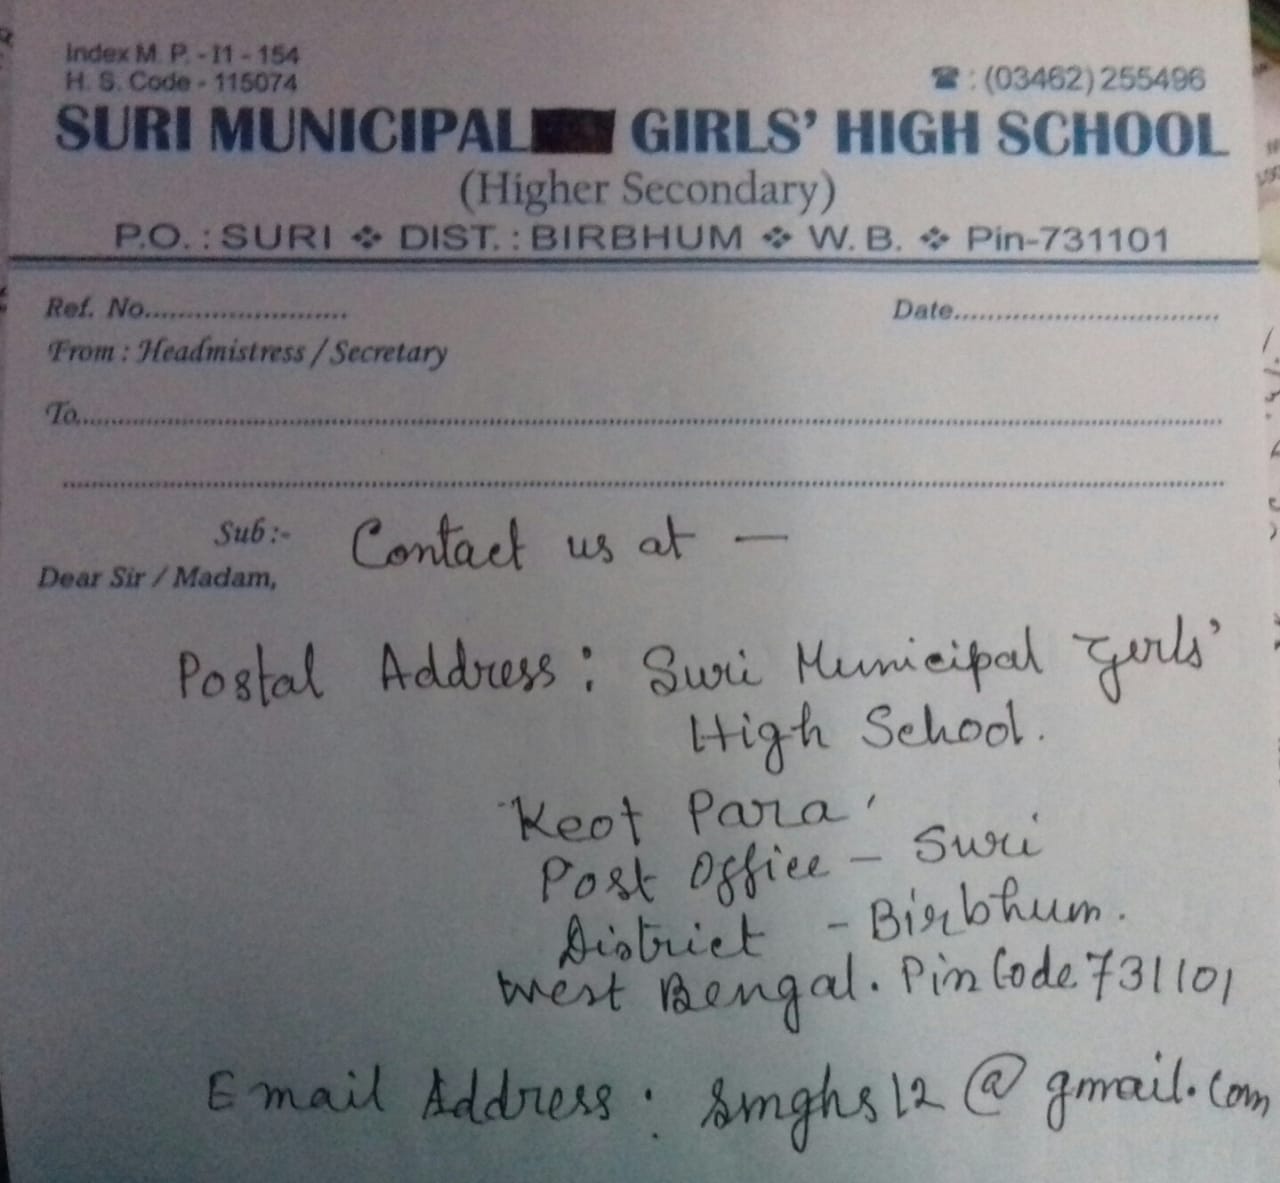 Index M. P. - I1 - 154
H. S. Code - 115074
☎ : (03462) 255496
SURI MUNICIPAL GIRLS' HIGH SCHOOL
(Higher Secondary)
P.O. : SURI ❖ DIST. : BIRBHUM ❖ W. B. ❖ Pin-731101
Ref. No........................ Date..............................
From : Headmistress / Secretary
To................................................................
................................................................
Sub :- Contact us at —
Dear Sir / Madam,
Postal Address : Suri Municipal Girls'
High School.
Keot Para
Post Office - Suri
District - Birbhum.
West Bengal. Pin Code 731101
Email Address : smghs12@gmail.com